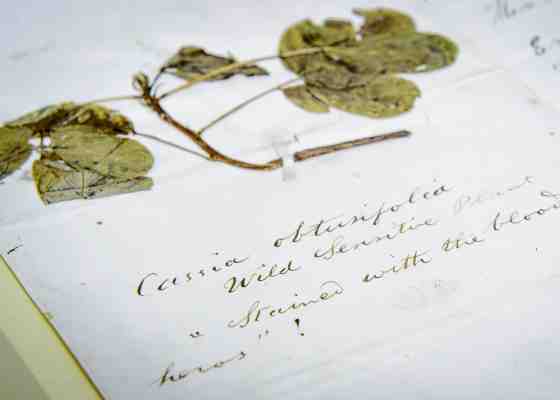 Cassia obtusifolia
Wild Sensitive Plant
" Stained with the blood
heros" !